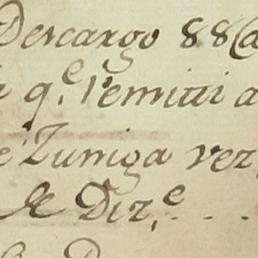 Descargo 88@
a q.e remiti a
e Zuniga vez
de Diz.e . . .